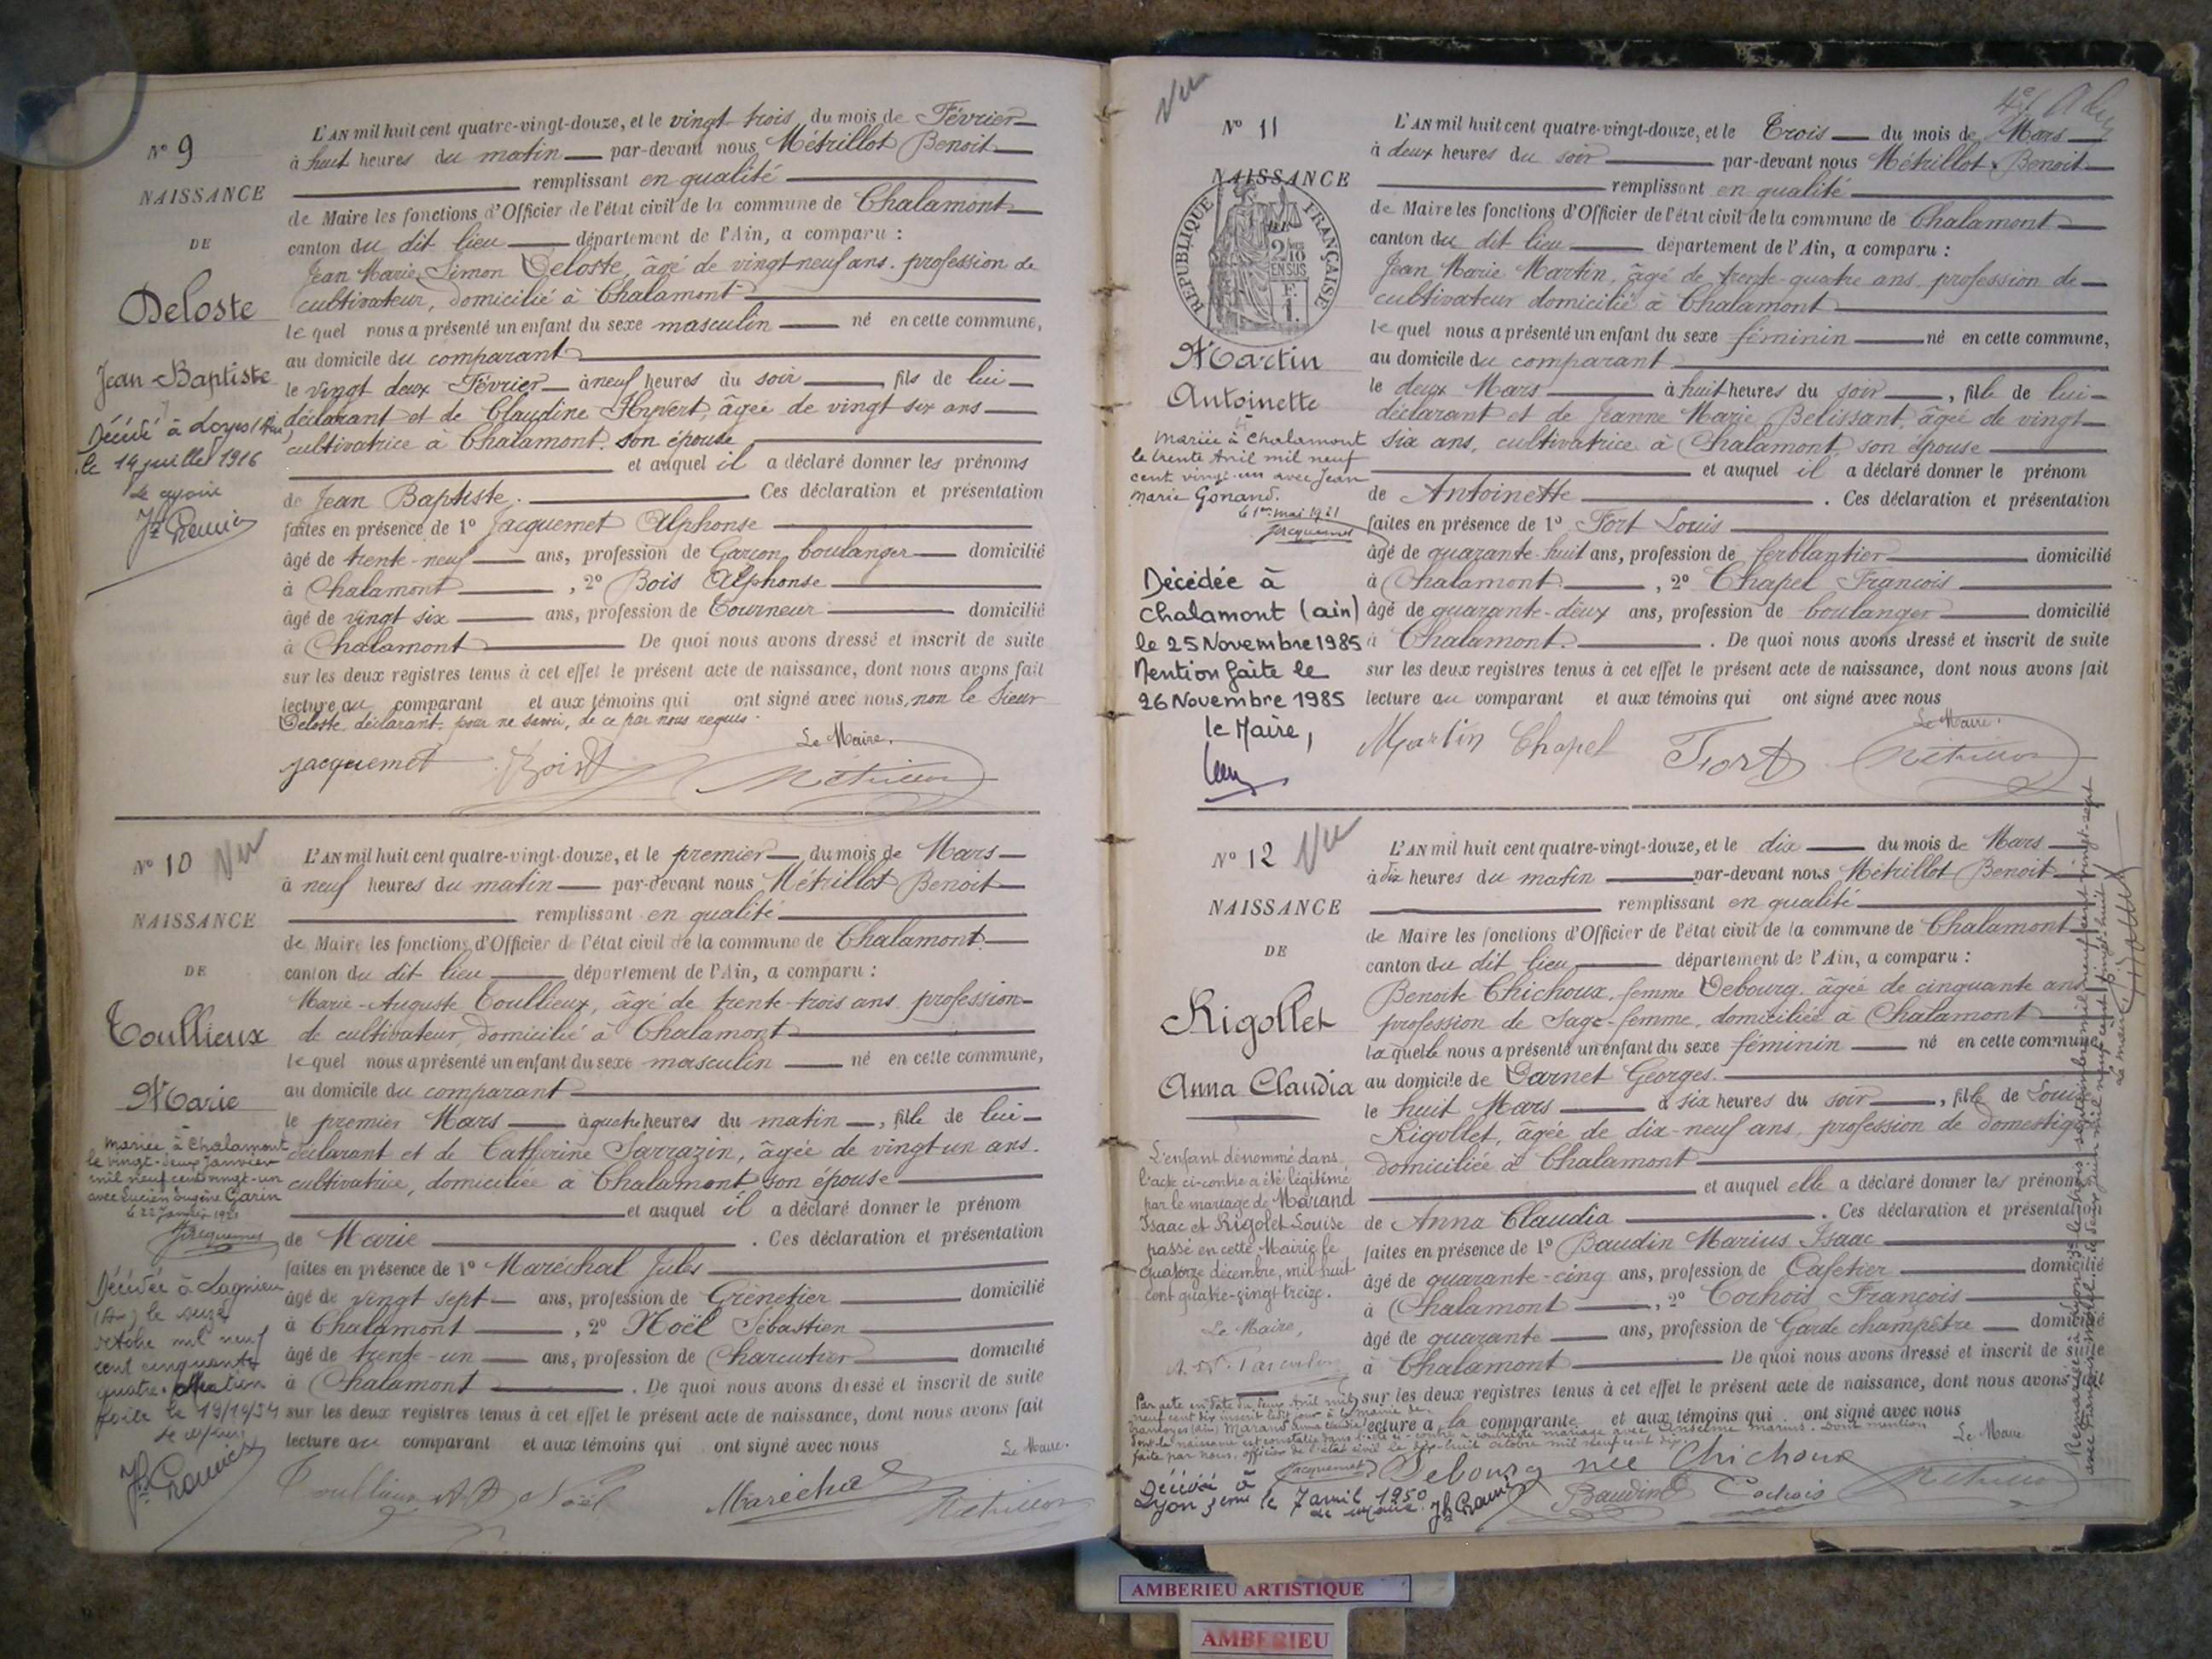 N° 9
NAISSANCE
DE
Deloste
Jean-Baptiste
Décédé à Loyes (Ain)
le 14 juillet 1916
L'AN mil huit cent quatre-vingt-douze, et le vingt trois du mois de Février
à huit heures du matin par-devant nous Métrillot Benoit
remplissant en qualité
de Maire les fonctions d'Officier de l'état civil de la commune de Chalamont
canton du dit lieu département de l'Ain, a comparu :
Jean Marie Simon Deloste, âgé de vingt-neuf ans. profession de
cultivateur, domicilié à Chalamont
lequel nous a présenté un enfant du sexe masculin né en cette commune,
au domicile du comparant
le vingt deux Février à neuf heures du soir, fils de lui
déclarant et de Claudine Hyvert, âgée de vingt six ans
cultivatrice à Chalamont. son épouse
et auquel il a déclaré donner les prénoms
de Jean Baptiste. Ces déclaration et présentation
faites en présence de 1° Jacquemet Alphonse
âgé de trente-neuf ans, profession de Garçon boulanger domicilié
à Chalamont, 2° Bois Alphonse
âgé de vingt six ans, profession de Tourneur domicilié
à Chalamont De quoi nous avons dressé et inscrit de suite
sur les deux registres tenus à cet effet le présent acte de naissance, dont nous avons fait
lecture au comparant et aux témoins qui ont signé avec nous, non le Sieur
Deloste déclarant, pour ne savoir, de ce par nous requis.
Le Maire.
Jacquemet Bois Métrillot
N° 10 Vu
NAISSANCE
DE
Toullieux
Marie
Mariée à Chalamont
le vingt-deux Janvier
mil neuf cent vingt-un
avec Lucien Eugène Garin
le 22 Janvier 1921
Jacquemet
Décédée à Lagnieu
(Ain) le seize
octobre mil neuf
cent cinquante
quatre. Mention
faite le 19/10/54
L'AN mil huit cent quatre-vingt-douze, et le premier du mois de Mars
à neuf heures du matin par-devant nous Métrillot Benoit
remplissant en qualité
de Maire les fonctions d'Officier de l'état civil de la commune de Chalamont
canton du dit lieu département de l'Ain, a comparu :
Marie-Auguste Toullieux, âgé de trente-trois ans profession
de cultivateur, domicilié à Chalamont
lequel nous a présenté un enfant du sexe masculin né en cette commune,
au domicile du comparant
le premier Mars à quatre heures du matin, fille de lui
déclarant et de Catherine Sarrazin, âgée de vingt-un ans.
cultivatrice, domiciliée à Chalamont son épouse
et auquel il a déclaré donner le prénom
de Marie. Ces déclaration et présentation
faites en présence de 1° Maréchal Jules
âgé de vingt sept ans, profession de Grènetier domicilié
à Chalamont, 2° Noël Sébastien
âgé de trente-un ans, profession de Charcutier domicilié
à Chalamont. De quoi nous avons dressé et inscrit de suite
sur les deux registres tenus à cet effet le présent acte de naissance, dont nous avons fait
lecture au comparant et aux témoins qui ont signé avec nous
Le Maire.
Toullieux Noël Maréchal Métrillot
Vu
N° 11
NAISSANCE
RÉPUBLIQUE FRANÇAISE
2/10
EN SUS
F.
1.
Martin
Antoinette
Mariée à Chalamont
le trente Avril mil neuf
cent vingt-un avec Jean
Marie Gonand.
le 1er mai 1921
Jacquemet
Décédée à
Chalamont (ain)
le 25 Novembre 1985
Mention faite le
26 Novembre 1985
le Maire,
L'AN mil huit cent quatre-vingt-douze, et le Trois du mois de Mars
à deux heures du soir par-devant nous Métrillot Benoit
remplissant en qualité
de Maire les fonctions d'Officier de l'état civil de la commune de Chalamont
canton du dit lieu département de l'Ain, a comparu :
Jean Marie Martin, âgé de trente-quatre ans, profession de
cultivateur domicilié à Chalamont
lequel nous a présenté un enfant du sexe féminin né en cette commune,
au domicile du comparant
le deux Mars à huit heures du soir, fille de lui
déclarant et de Jeanne Marie Belissant, âgée de vingt
six ans, cultivatrice à Chalamont, son épouse
et auquel il a déclaré donner le prénom
de Antoinette. Ces déclaration et présentation
faites en présence de 1° Fort Louis
âgé de quarante-huit ans, profession de ferblantier domicilié
à Chalamont, 2° Chapel François
âgé de quarante-deux ans, profession de boulanger domicilié
à Chalamont. De quoi nous avons dressé et inscrit de suite
sur les deux registres tenus à cet effet le présent acte de naissance, dont nous avons fait
lecture au comparant et aux témoins qui ont signé avec nous
Le Maire.
Martin Chapel Fort Métrillot
N° 12 Vu
NAISSANCE
DE
Rigollet
Anna Claudia
L'enfant dénommé dans
l'acte ci-contre a été légitimé
par le mariage de Marand
Isaac et Rigolet Louise
passé en cette Mairie le
quatorze décembre, mil huit
cent quatre-vingt treize.
Le Maire,
L'AN mil huit cent quatre-vingt-douze, et le dix du mois de Mars
à dix heures du matin par-devant nous Métrillot Benoit
remplissant en qualité
de Maire les fonctions d'Officier de l'état civil de la commune de Chalamont
canton du dit lieu département de l'Ain, a comparu :
Benoite Chichoux, femme Debourg, âgée de cinquante ans
profession de Sage-femme, domiciliée à Chalamont
laquelle nous a présenté un enfant du sexe féminin né en cette commune,
au domicile de Darnet Georges.
le huit Mars à six heures du soir, fille de Louise
Rigollet, âgée de dix-neuf ans, profession de domestique
domiciliée à Chalamont
et auquel elle a déclaré donner les prénoms
de Anna Claudia. Ces déclaration et présentation
faites en présence de 1° Baudin Marius Isaac
âgé de quarante-cinq ans, profession de Cafetier domicilié
à Chalamont, 2° Cochois François
âgé de quarante ans, profession de Garde champêtre domicilié
à Chalamont De quoi nous avons dressé et inscrit de suite
sur les deux registres tenus à cet effet le présent acte de naissance, dont nous avons fait
lecture à la comparante et aux témoins qui ont signé avec nous
Le Maire
Par acte en date du deux Avril mil
neuf cent dix inscrit ledit jour à la mairie de
Marand Anna Claudia
dont la naissance est constatée dans l'acte ci-contre a contracté mariage avec Anselme Marius. Dont mention
faite par nous, officier de l'état civil le dix-huit octobre mil neuf cent dix
Jacquemet
Debourg née Chichoux
Baudin Cochois Métrillot
Décédée à
Lyon 3eme le 7 avril 1950
AMBERIEU ARTISTIQUE
AMBERIEU